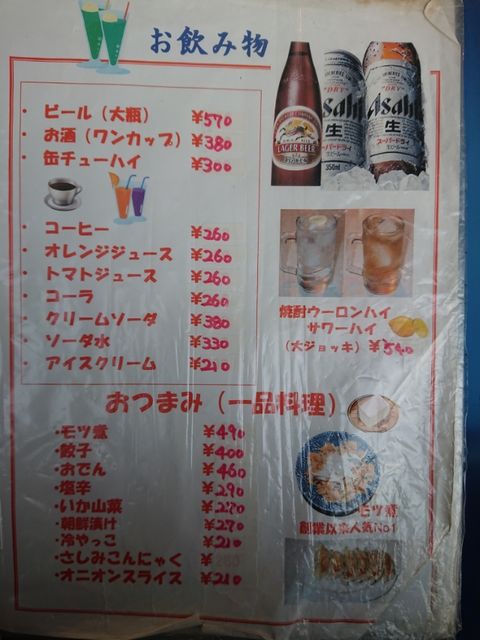 お飲み物
・ビール（大瓶） ¥570
・お酒（ワンカップ） ¥380
・缶チューハイ ¥300
・コーヒー ¥260
・オレンジジュース ¥260
・トマトジュース ¥260
・コーラ ¥260
・クリームソーダ ¥380
・ソーダ水 ¥330
・アイスクリーム ¥210
LAGER BEER
"DRY"
Asahi
生
スーパードライ
350ml
"DRY"
Asahi
生
スーパードライ
焼酎ウーロンハイ
サワーハイ
（大ジョッキ） ¥540
おつまみ（一品料理）
・モツ煮 ¥490
・餃子 ¥400
・おでん ¥460
・塩辛 ¥290
・いか山菜 ¥270
・朝鮮漬け ¥270
・冷やっこ ¥210
・さしみこんにゃく ¥260
・オニオンスライス ¥210
モツ煮
創業以来人気No1